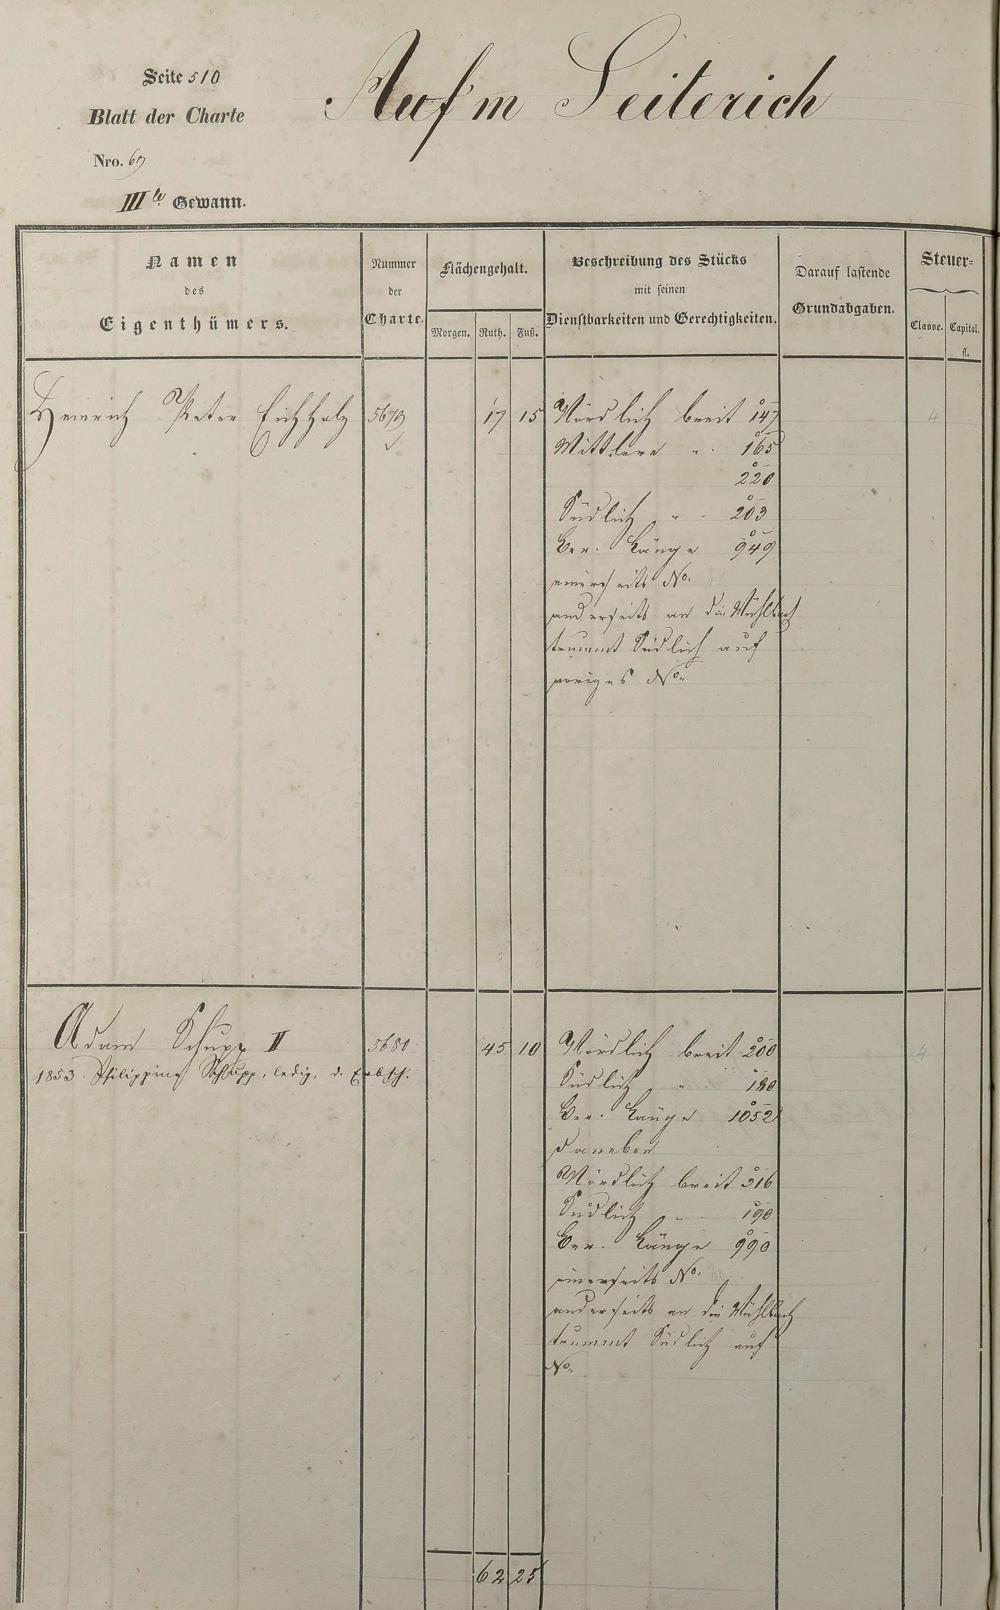 Seite 510
Blatt der Charte
Nro. 69
IIIte Gewann.
Auf'm Seiterich
Namen
des
Eigenthümers.
Nummer
der
Charte.
Flächengehalt.
Morgen. Ruth. Fuß.
Beschreibung des Stücks
mit seinen
Dienstbarkeiten und Gerechtigkeiten.
Darauf lastende
Grundabgaben.
Steuer=
Classe. Capital.
fl.
Heinrich Peter Eichholz 5679 17 15 Nördlich breit 147 4
Mittlere " 165
220
Südlich " 203
Ber. Länge 949
einerseits No.
anderseits an die Mühlbach
trummt Südlich auf
voriges No.
Adam Schupp II 5680 45 10 Nördlich breit 200 4
1853 Philippine Schupp, ledig, d. Erbsch.
Südlich " 180
Ber. Länge 1052
daneben
Nördlich breit 316
Südlich " 190
Ber. Länge 990
einerseits No.
anderseits an die Mühlbach
trummt Südlich auf
No.
62 25